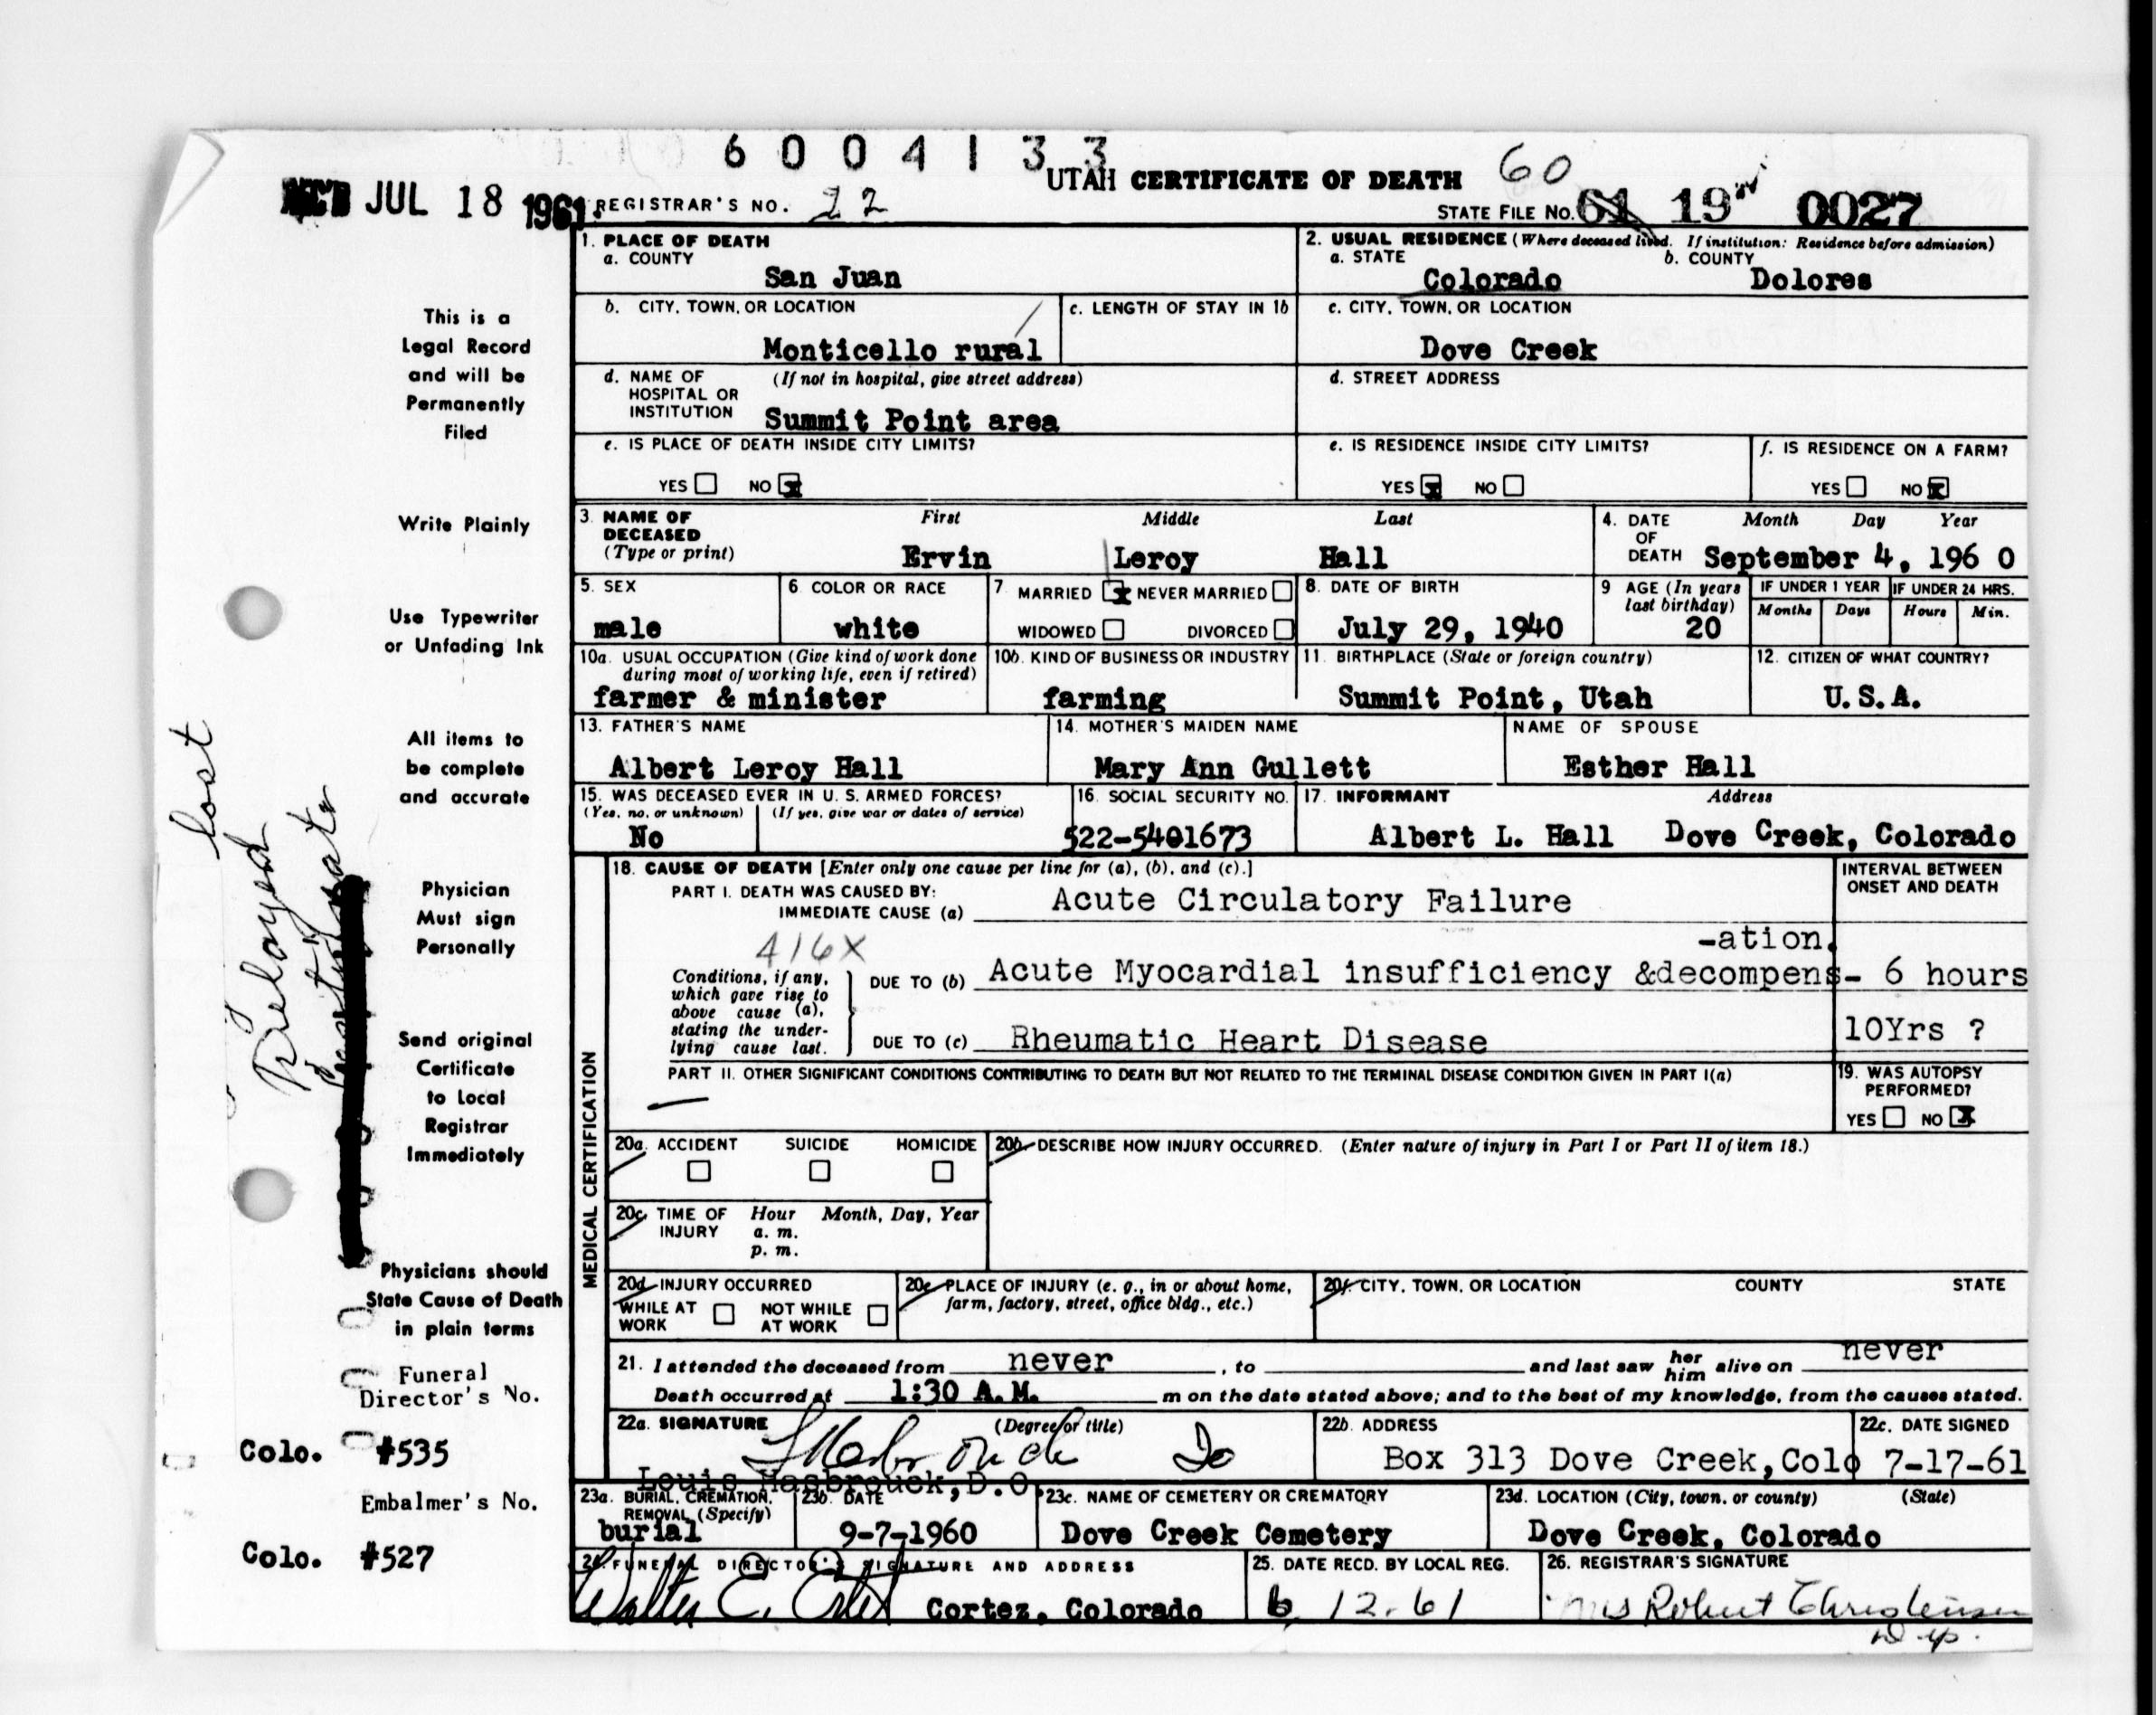 6004133
JUL 18 1961.
REGISTRAR'S NO. 22
UTAH CERTIFICATE OF DEATH
60
STATE FILE NO. 61 19 0027
1. PLACE OF DEATH
a. COUNTY
San Juan
2. USUAL RESIDENCE (Where deceased lived. If institution: Residence before admission)
a. STATE b. COUNTY
Colorado Dolores
b. CITY, TOWN, OR LOCATION
Monticello rural
c. LENGTH OF STAY IN 1b
c. CITY, TOWN, OR LOCATION
Dove Creek
d. NAME OF HOSPITAL OR INSTITUTION (If not in hospital, give street address)
Summit Point area
d. STREET ADDRESS
e. IS PLACE OF DEATH INSIDE CITY LIMITS?
YES NO x
e. IS RESIDENCE INSIDE CITY LIMITS?
YES x NO
f. IS RESIDENCE ON A FARM?
YES NO x
3. NAME OF DECEASED (Type or print) First Middle Last
Ervin Leroy Hall
4. DATE OF DEATH Month Day Year
September 4, 196 0
5. SEX
male
6. COLOR OR RACE
white
7. MARRIED x NEVER MARRIED
WIDOWED DIVORCED
8. DATE OF BIRTH
July 29, 1940
9 AGE (In years last birthday)
20
IF UNDER 1 YEAR IF UNDER 24 HRS.
Months Days Hours Min.
10a. USUAL OCCUPATION (Give kind of work done during most of working life, even if retired)
farmer & minister
10b. KIND OF BUSINESS OR INDUSTRY
farming
11. BIRTHPLACE (State or foreign country)
Summit Point, Utah
12. CITIZEN OF WHAT COUNTRY?
U.S.A.
13. FATHER'S NAME
Albert Leroy Hall
14. MOTHER'S MAIDEN NAME
Mary Ann Gullett
NAME OF SPOUSE
Esther Hall
15. WAS DECEASED EVER IN U. S. ARMED FORCES?
(Yes, no, or unknown) (If yes, give war or dates of service)
No
16. SOCIAL SECURITY NO.
17. INFORMANT Address
Albert L. Hall Dove Creek, Colorado
MEDICAL CERTIFICATION
18. CAUSE OF DEATH [Enter only one cause per line for (a), (b), and (c).]
INTERVAL BETWEEN ONSET AND DEATH
PART I. DEATH WAS CAUSED BY:
IMMEDIATE CAUSE (a) Acute Circulatory Failure
416X
Conditions, if any, which gave rise to above cause (a), stating the underlying cause last.
-ation.
DUE TO (b) Acute Myocardial insufficiency &decompens- 6 hours
DUE TO (c) Rheumatic Heart Disease 10Yrs ?
PART II. OTHER SIGNIFICANT CONDITIONS CONTRIBUTING TO DEATH BUT NOT RELATED TO THE TERMINAL DISEASE CONDITION GIVEN IN PART I(a)
19. WAS AUTOPSY PERFORMED?
YES NO x
20a. ACCIDENT SUICIDE HOMICIDE
20b. DESCRIBE HOW INJURY OCCURRED. (Enter nature of injury in Part I or Part II of item 18.)
20c. TIME OF INJURY Hour Month, Day, Year
a. m.
p. m.
20d. INJURY OCCURRED
WHILE AT WORK NOT WHILE AT WORK
20e. PLACE OF INJURY (e. g., in or about home, farm, factory, street, office bldg., etc.)
20f. CITY, TOWN, OR LOCATION COUNTY STATE
21. I attended the deceased from never, to and last saw her him alive on never
Death occurred at 1:30 A.M. m on the date stated above; and to the best of my knowledge, from the causes stated.
22a. SIGNATURE (Degree or title)
L Hasbrouck Do
Louis Hasbrouck, D.O.
22b. ADDRESS
Box 313 Dove Creek, Colo
22c. DATE SIGNED
7-17-61
23a. BURIAL, CREMATION, REMOVAL (Specify)
burial
23b. DATE
9-7-1960
23c. NAME OF CEMETERY OR CREMATORY
Dove Creek Cemetery
23d. LOCATION (City, town, or county) (State)
Dove Creek, Colorado
24. FUNERAL DIRECTOR'S SIGNATURE AND ADDRESS
Walter E. Cortez, Colorado
25. DATE RECD. BY LOCAL REG.
6 12.61
26. REGISTRAR'S SIGNATURE
Mrs Robert Christensen
Dep.
This is a
Legal Record
and will be
Permanently
Filed
Write Plainly
Use Typewriter
or Unfading Ink
All items to
be complete
and accurate
Physician
Must sign
Personally
Send original
Certificate
to Local
Registrar
Immediately
Physicians should
State Cause of Death
in plain terms
Funeral
Director's No.
Colo. #535
Embalmer's No.
Colo. #527
Delayed
lost